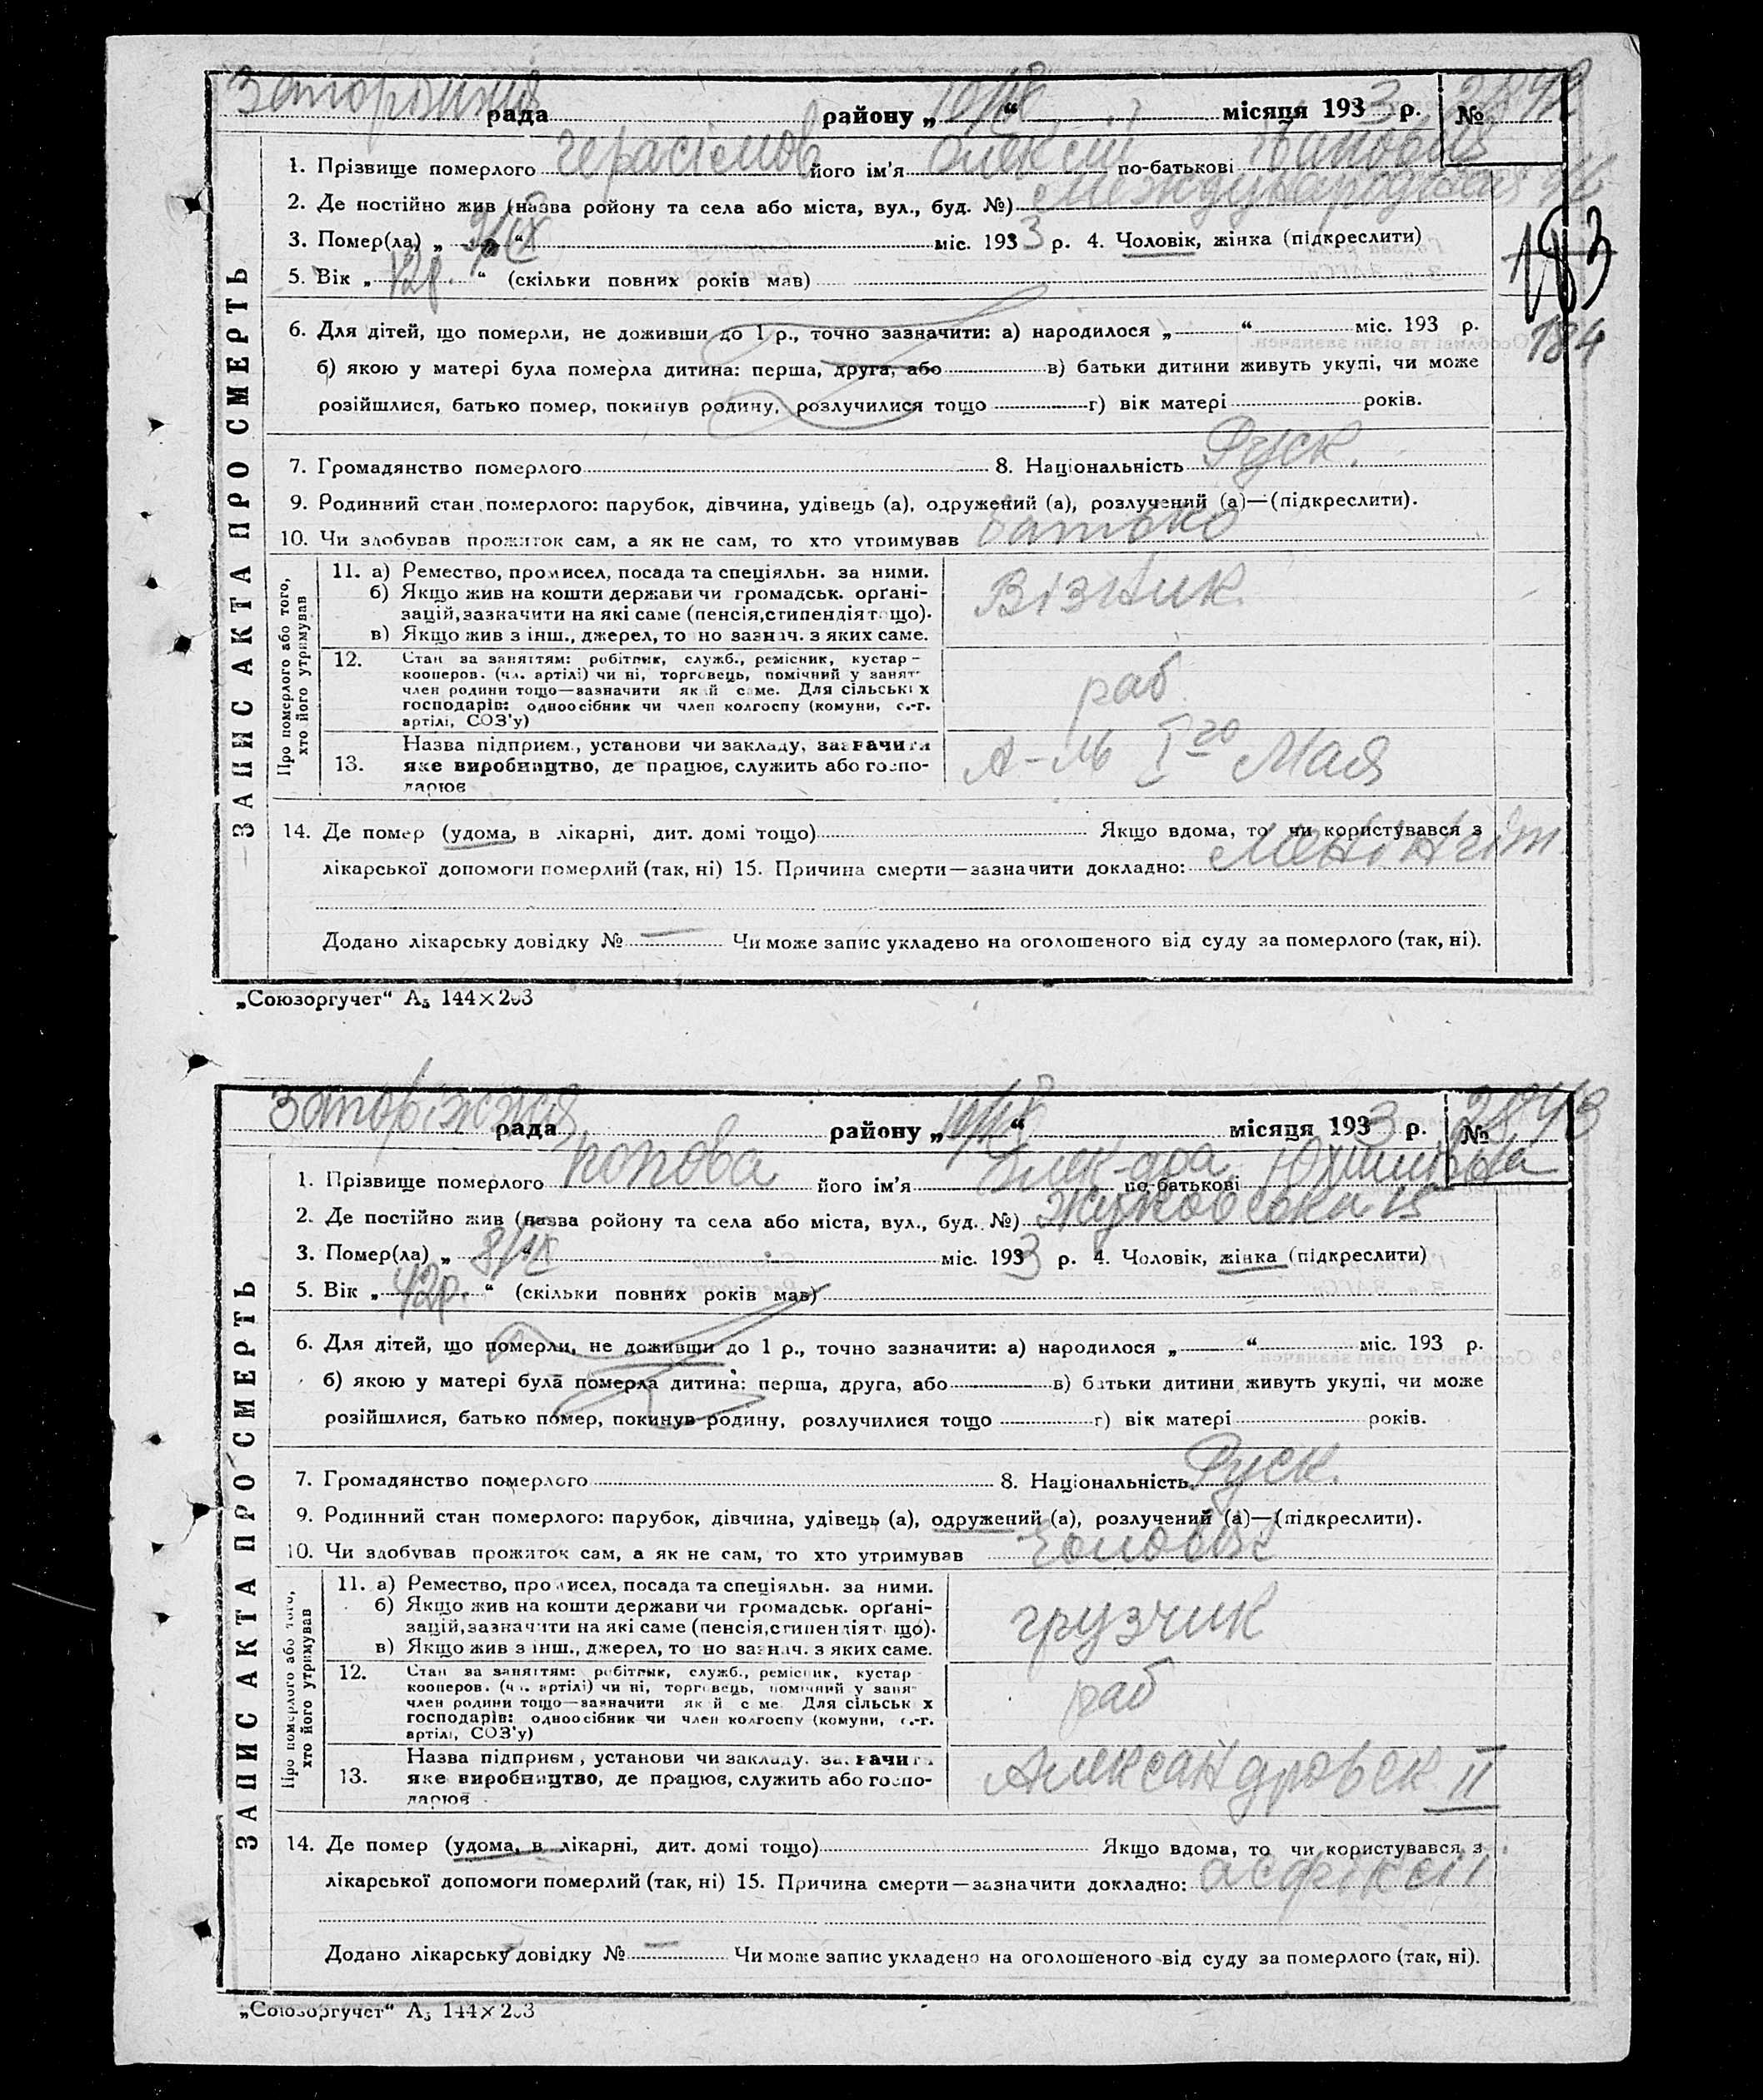 Запоріжжя рада району „10/IX“ місяця 1933 р. № 2842
1. Прізвище померлого Герасімов його ім’я Олексій по-батькові Іванович
2. Де постійно жив (назва ройону та села або міста, вул., буд. №) Международная
3. Помер(ла) „9/IX“ міс. 1933 р. 4. Чоловік, жінка (підкреслити)
5. Вік „12р.“ (скільки повних років мав)
183
184
6. Для дітей, що померли, не доживши до 1 р., точно зазначити: а) народилося „ “ міс. 193 р.
б) якою у матері була померла дитина: перша, друга, або в) батьки дитини живуть укупі, чи може
розійшлися, батько помер, покинув родину, розлучилися тощо г) вік матері років.
7. Громадянство померлого 8. Національність Руск.
9. Родинний стан померлого: парубок, дівчина, удівець (а), одружений (а), розлучений (а)—(підкреслити).
10. Чи здобував прожиток сам, а як не сам, то хто утримував батько
ЗАПИС АКТА ПРО СМЕРТЬ
Про померлого або того, хто його утримував
11. а) Ремество, промисел, посада та спеціяльн. за ними.
б) Якщо жив на кошти держави чи громадськ. орґані-
зацій, зазначити на які саме (пенсія, стипендія тощо).
в) Якщо жив з інш., джерел, то но зазнач. з яких саме.
Візник.
12. Стан за заняттям: робітник, служб., ремісник, кустар-
кооперов. (чл. артілі) чи ні, торговець, помічний у занят
член родини тощо—зазначити який саме. Для сільських
господарів: одноосібник чи член колгоспу (комуни, с.-г.
артілі, СОЗ’у)
раб
Назва підприєм., установи чи закладу, зазначити
13. яке виробництво, де працює, служить або госпо-
дарює
А-ль I го Мая
14. Де помер (удома, в лікарні, дит. домі тощо) Якщо вдома, то чи користувався з
лікарської допомоги померлий (так, ні) 15. Причина смерти—зазначити докладно: менінгіт
Додано лікарську довідку № — Чи може запис укладено на оголошеного від суду за померлого (так, ні).
„Союзоргучет“ А5 144×203
Запоріжжя рада району „10/IX“ місяця 1933 р. № 2843
1. Прізвище померлого Попова його ім’я Олек-дра по-батькові Юхимівна
2. Де постійно жив (назва ройону та села або міста, вул., буд. №) Жуковська 15
3. Помер(ла) „8/IX“ міс. 1933 р. 4. Чоловік, жінка (підкреслити)
5. Вік „42р.“ (скільки повних років мав)
6. Для дітей, що померли, не доживши до 1 р., точно зазначити: а) народилося „ “ міс. 193 р.
б) якою у матері була померла дитина: перша, друга, або в) батьки дитини живуть укупі, чи може
розійшлися, батько помер, покинув родину, розлучилися тощо г) вік матері років.
7. Громадянство померлого 8. Національність Руск.
9. Родинний стан померлого: парубок, дівчина, удівець (а), одружений (а), розлучений (а)—(підкреслити).
10. Чи здобував прожиток сам, а як не сам, то хто утримував чоловік
ЗАПИС АКТА ПРО СМЕРТЬ
Про померлого або того, хто його утримував
11. а) Ремество, промисел, посада та спеціяльн. за ними.
б) Якщо жив на кошти держави чи громадськ. орґані-
зацій, зазначити на які саме (пенсія, стипендія тощо).
в) Якщо жив з інш., джерел, то но зазнач. з яких саме.
грузчик
12. Стан за заняттям: робітник, служб., ремісник, кустар
кооперов. (чл. артілі) чи ні, торговець, помічний у заня
член родини тощо—зазначити який саме. Для сільських
господарів: одноосібник чи член колгоспу (комуни, с.-г.
артілі, СОЗ’у)
раб
Назва підприєм., установи чи закладу, зазначити
13. яке виробництво, де працює, служить або госпо-
дарює
Александровск II
14. Де помер (удома, в лікарні, дит. домі тощо) Якщо вдома, то чи користувався з
лікарської допомоги померлий (так, ні) 15. Причина смерти—зазначити докладно: асфіксії
Додано лікарську довідку № — Чи може запис укладено на оголошеного від суду за померлого (так, ні).
„Союзоргучет“ А5 144×203